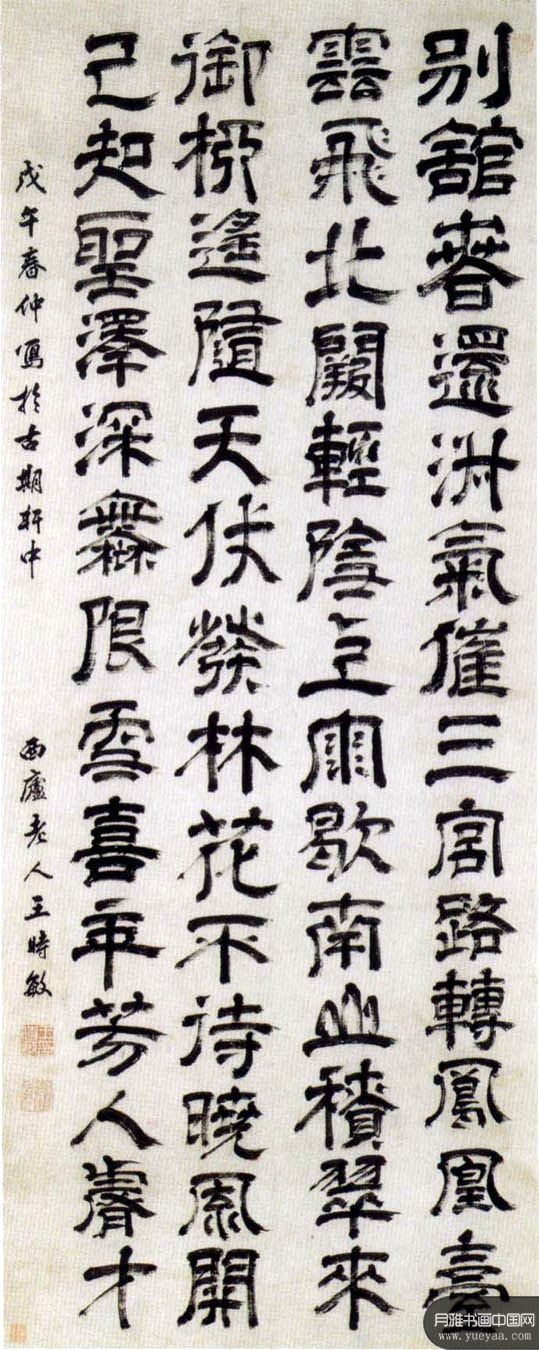 別舘春還淑氣催三宮路轉鳳凰臺
雲飛北闕輕陰雨歇南山積翠來
御柳遙隨天仗發林花不待曉風開
已知聖澤深無限喜年芳入睿才
戊午春仲寫於古期軒中 西廬老人王時敏
月雅书画中国网
www.yueyaa.com